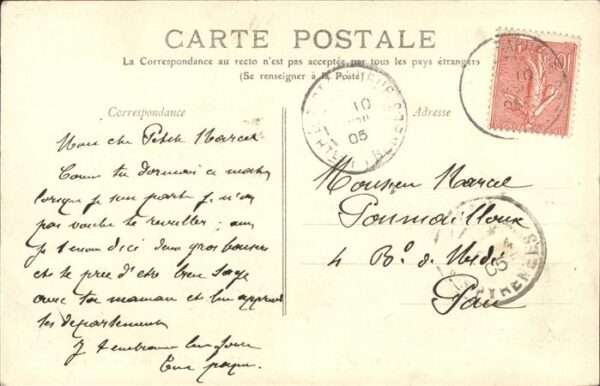 CARTE POSTALE
La Correspondance au recto n'est pas acceptée par tous les pays étrangers
(Se renseigner à la Poste)
Correspondance
Adresse
Mon cher Petit Marcel
Comme tu dormais ce matin
lorsque je suis parti je n'ai
pas voulu te reveiller
je t'envoi d'ici deux gros baisers
et te prie d'etre bien sage
avec ta maman et
tes departements
Je t'embrasse
Ton papa
Monsieur Marcel
4 Bd du Midi
Pau
10
05